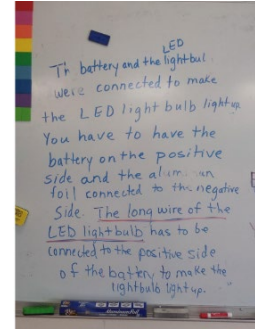 LED
Th battery and the lightbul
were connected to make
the LED light bulb light up.
You have to have the
battery on the positive
side and the alumi an
foil connected to the negative
Side. The long wire of the
LED lightbulb has to be
connected to the positive side
of the battery to make the
lightbulb light up.